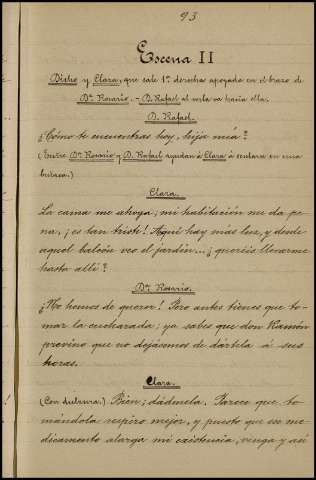 93
Escena II
Dicho y Clara, que sale 1ª derecha apoyada en el brazo de
Dª Rosario. - D. Rafael al verla va hacia ella.
D. Rafael.
¿Cómo te encuentras hoy, hija mía?
(Entre Dª Rosario y D. Rafael ayudan á Clara á sentarse en una
butaca.)
Clara.
La cama me ahoga; mi habitación me da pe-
na, ¡es tan triste! Aquí hay más luz, y desde
aquel balcón veo el jardín...; ¿queréis llevarme
hasta allí?
Dª Rosario.
¡No hemos de querer! Pero antes tienes que to-
mar la cucharada; ya sabes que don Ramón
previno que no dejásemos de dártela á sus
horas.
Clara.
(Con dulzura.) Bien; dádmela. Parece que to-
mándola respiro mejor, y puesto que su me-
dicamento alarga mi existencia, venga y así